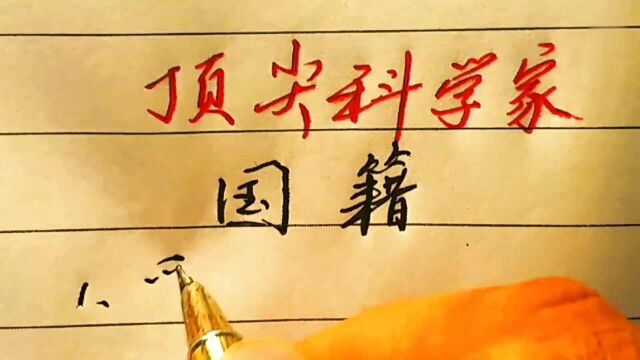 顶尖科学家
国籍
1、